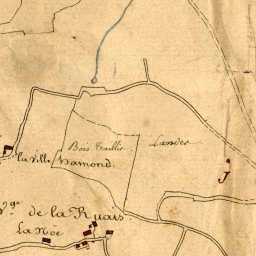 Bois Taillis
Landes
la Ville hamond
J
Vge de la Ruais
La Noe